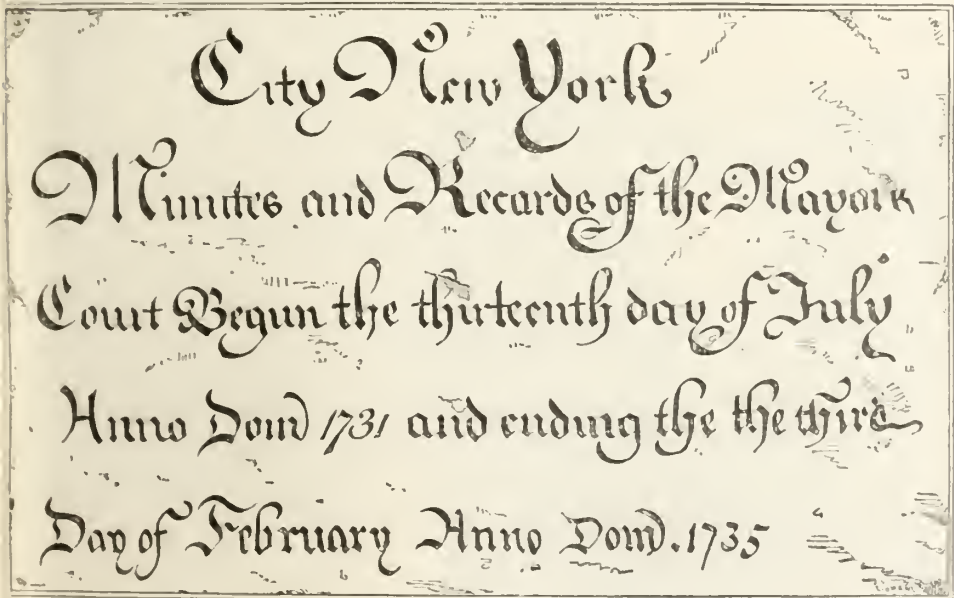 City New York
Minutes and Records of the Mayors
Court Begun the thirteenth day of July
Anno Dom 1731 and ending the the third
Day of February Anno Domd. 1735